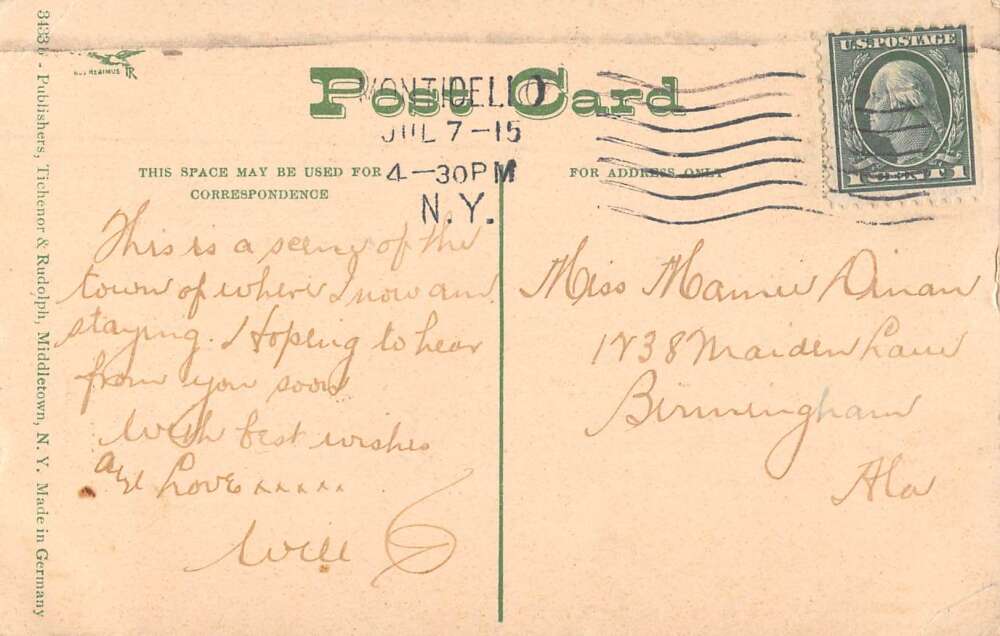 34336 - Publishers, Tichenor & Rudolph, Middletown, N. Y. Made in Germany
TR
Post Card
MONTICELLO
JUL 7-15
4-30PM
N.Y.
U.S. POSTAGE
1 1
THIS SPACE MAY BE USED FOR
CORRESPONDENCE
FOR ADDRESS ONLY
This is a scene of the
town of where I now am
staying. Hoping to hear
from you soon
With best wishes
and Love x x x x x
Will
Miss Mamie Dinan
1738 Maiden Lane
Birmingham
Ala